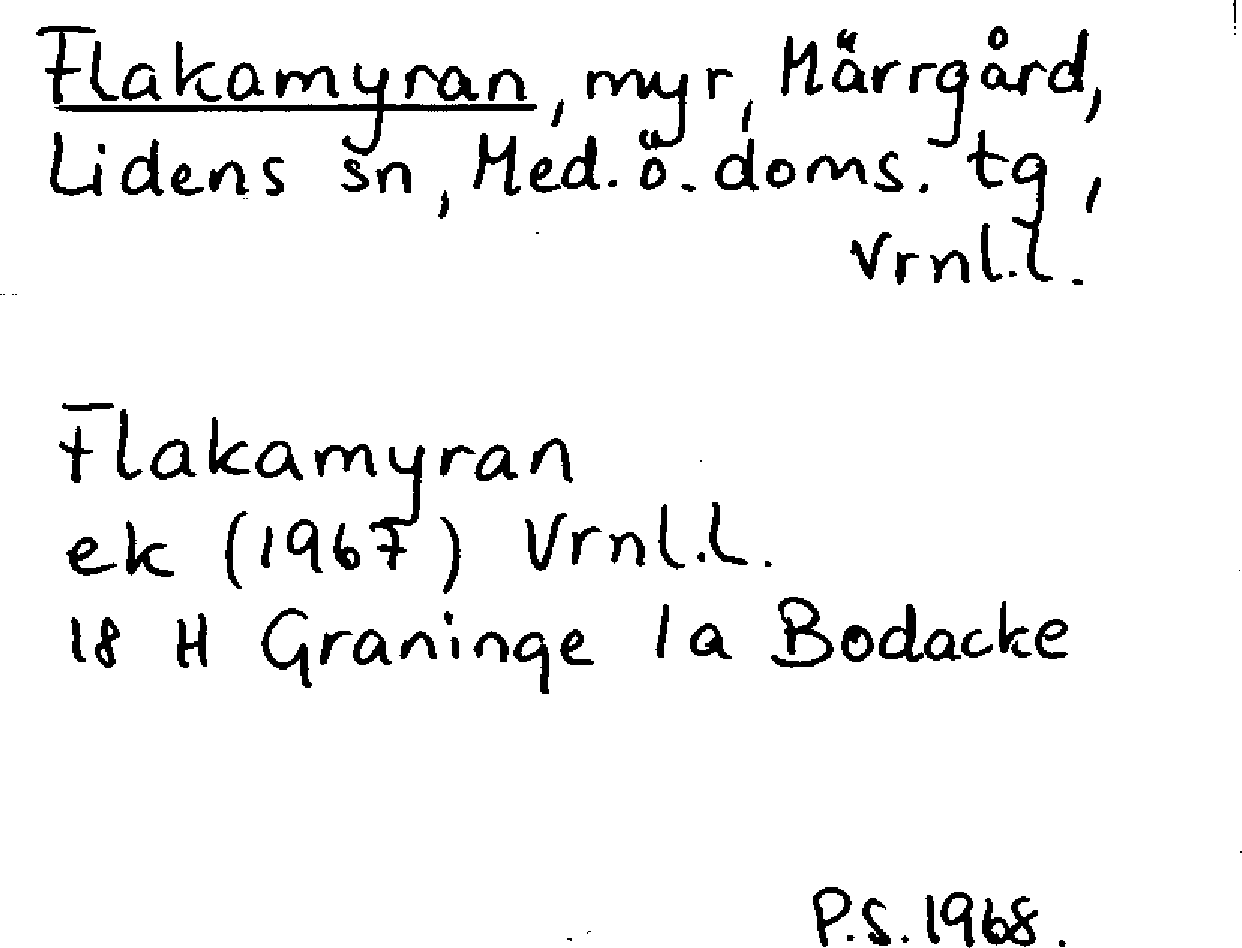 Flakamyran, myr, Märrgård,
Lidens sn, Med. ö. doms. tg,
Vrnl.l.
Flakamyran
ek (1967) Vrnl.l.
18 H Graninge 1a Bodacke
P.S. 1968.